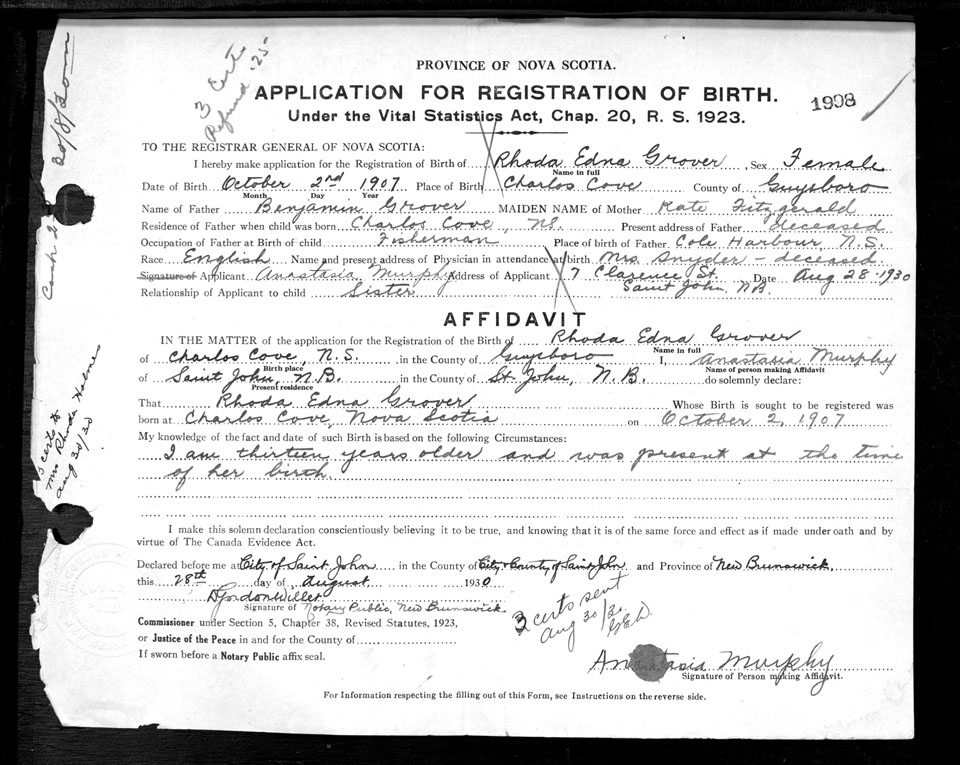 PROVINCE OF NOVA SCOTIA.
APPLICATION FOR REGISTRATION OF BIRTH.
1908
Under the Vital Statistics Act, Chap. 20, R. S. 1923.
3 Certs
Refund .25
20/8/30
Cash 2
TO THE REGISTRAR GENERAL OF NOVA SCOTIA:
I hereby make application for the Registration of Birth of Rhoda Edna Grover, Sex Female
Name in full
Date of Birth October 2nd 1907 Place of Birth Charlos Cove County of Guysboro
Month Day Year
Name of Father Benjamin Grover MAIDEN NAME of Mother Kate Fitzgerald
Residence of Father when child was born Charlos Cove, NS. Present address of Father deceased
Occupation of Father at Birth of child Fisherman Place of birth of Father Cole Harbour, N.S.
Race English Name and present address of Physician in attendance at birth Mrs. Snyder - deceased
Signature of Applicant Anastasia Murphy Address of Applicant 7 Clarence St. Date Aug 28-1930
Relationship of Applicant to child Sister Saint John, NB.
AFFIDAVIT
IN THE MATTER of the application for the Registration of the Birth of Rhoda Edna Grover
Name in full
of Charlos Cove, N.S. in the County of Guysboro I, Anastasia Murphy
Birth place Name of person making Affidavit
of Saint John, N.B. in the County of St. John, N.B. do solemnly declare:
Present residence
That Rhoda Edna Grover Whose Birth is sought to be registered was
born at Charlos Cove, Nova Scotia on October 2, 1907
My knowledge of the fact and date of such Birth is based on the following Circumstances:
I am thirteen years older and was present at the time
of her birth.
3 certs to
Mrs Rhoda
Aug 30/30
I make this solemn declaration conscientiously believing it to be true, and knowing that it is of the same force and effect as if made under oath and by
virtue of The Canada Evidence Act.
Declared before me at City of Saint John in the County of City & County of Saint John and Province of New Brunswick
this 28th day of August 1930
Signature of Notary Public, New Brunswick
3 certs sent
Aug 30/30
Commissioner under Section 5, Chapter 38, Revised Statutes, 1923,
or Justice of the Peace in and for the County of
If sworn before a Notary Public affix seal.
Anastasia Murphy
Signature of Person making Affidavit.
For Information respecting the filling out of this Form, see Instructions on the reverse side.